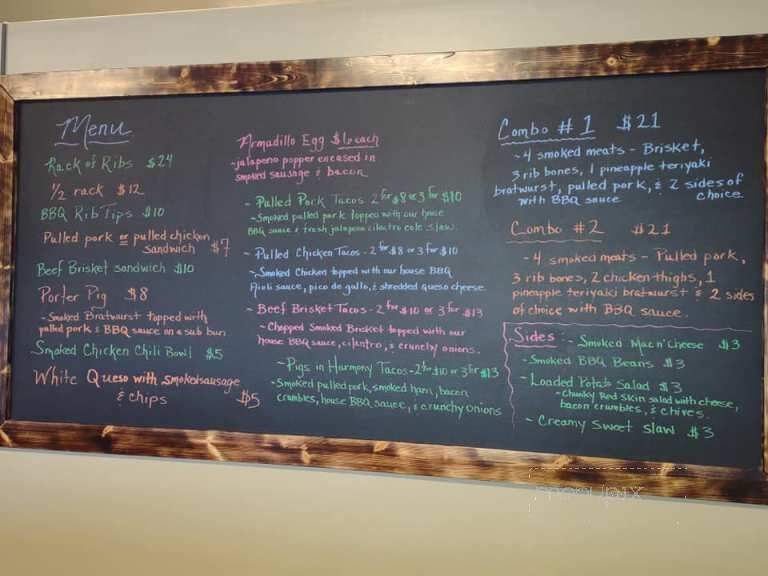 Menu
Rack of Ribs $24
1/2 rack $12
BBQ Rib Tips $10
Pulled pork or pulled chicken
sandwich $7
Beef Brisket sandwich $10
Porter Pig $8
- Smoked Bratwurst topped with
pulled pork & BBQ sauce on a sub bun
Smoked Chicken Chili Bowl $5
White Queso with smoked sausage
& chips $5
Armadillo Egg $6 each
- jalapeno popper encased in
smoked sausage & bacon
- Pulled Pork Tacos 2 for $8 or 3 for $10
- Smoked pulled pork topped with our house
BBQ sauce & fresh jalapeno cilantro cole slaw
- Pulled Chicken Tacos - 2 for $8 or 3 for $10
- Smoked Chicken topped with our house BBQ
Aioli sauce, pico de gallo, & shredded queso cheese.
- Beef Brisket Tacos - 2 for $10 or 3 for $13
- Chopped Smoked Brisket topped with our
house BBQ sauce, cilantro, & crunchy onions.
- Pigs in Harmony Tacos - 2 for $10 or 3 for $13
- Smoked pulled pork, smoked ham, bacon
crumbles, house BBQ sauce, & crunchy onions
Combo # 1 $21
- 4 smoked meats - Brisket,
3 rib bones, 1 pineapple teriyaki
bratwurst, pulled pork, & 2 sides of
with BBQ sauce choice
Combo #2 $21
- 4 smoked meats - Pulled pork,
3 rib bones, 2 chicken thighs, 1
pineapple teriyaki bratwurst & 2 sides
of choice with BBQ sauce.
Sides - Smoked Mac n' Cheese $3
- Smoked BBQ Beans $3
- Loaded Potato Salad $3
- Chunky Red skin salad with cheese,
bacon crumbles, & chives.
- Creamy Sweet slaw $3